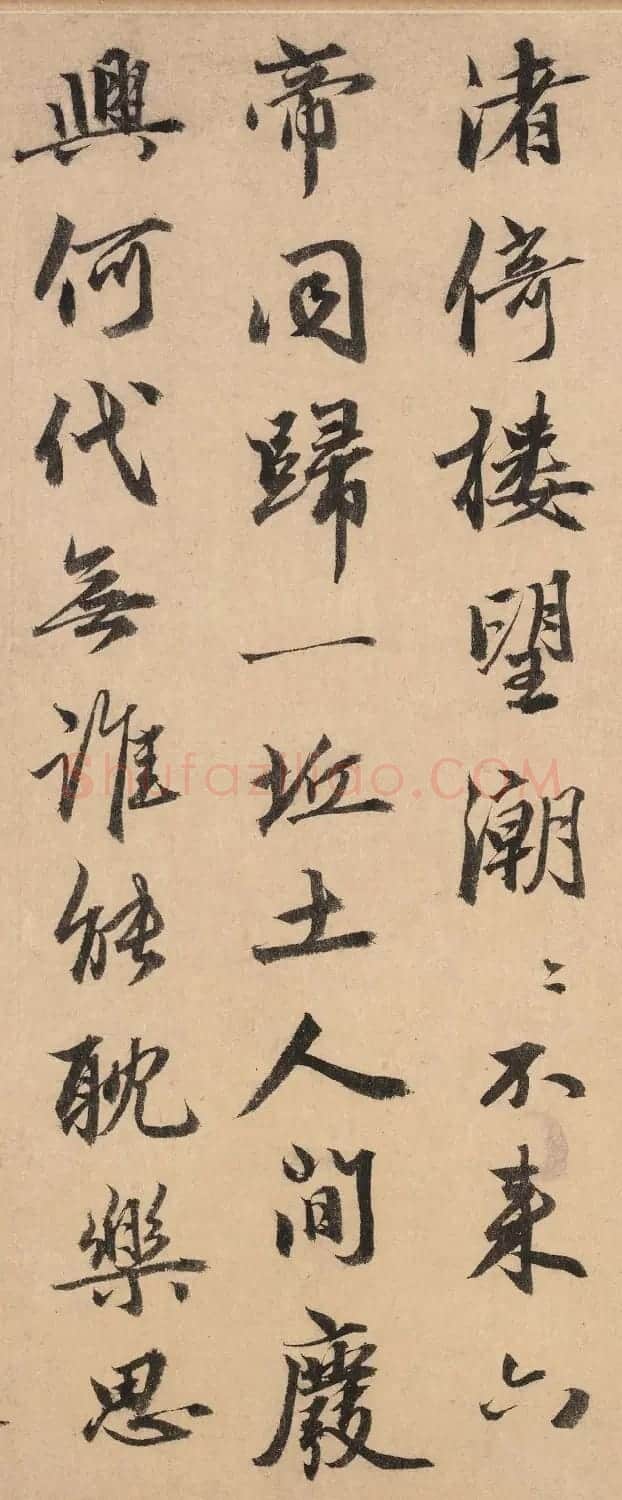 渚倚楼望潮〻不来六
帝同歸一坵土人间廢
興何代無誰能耽樂思
Shufaziliao.COM